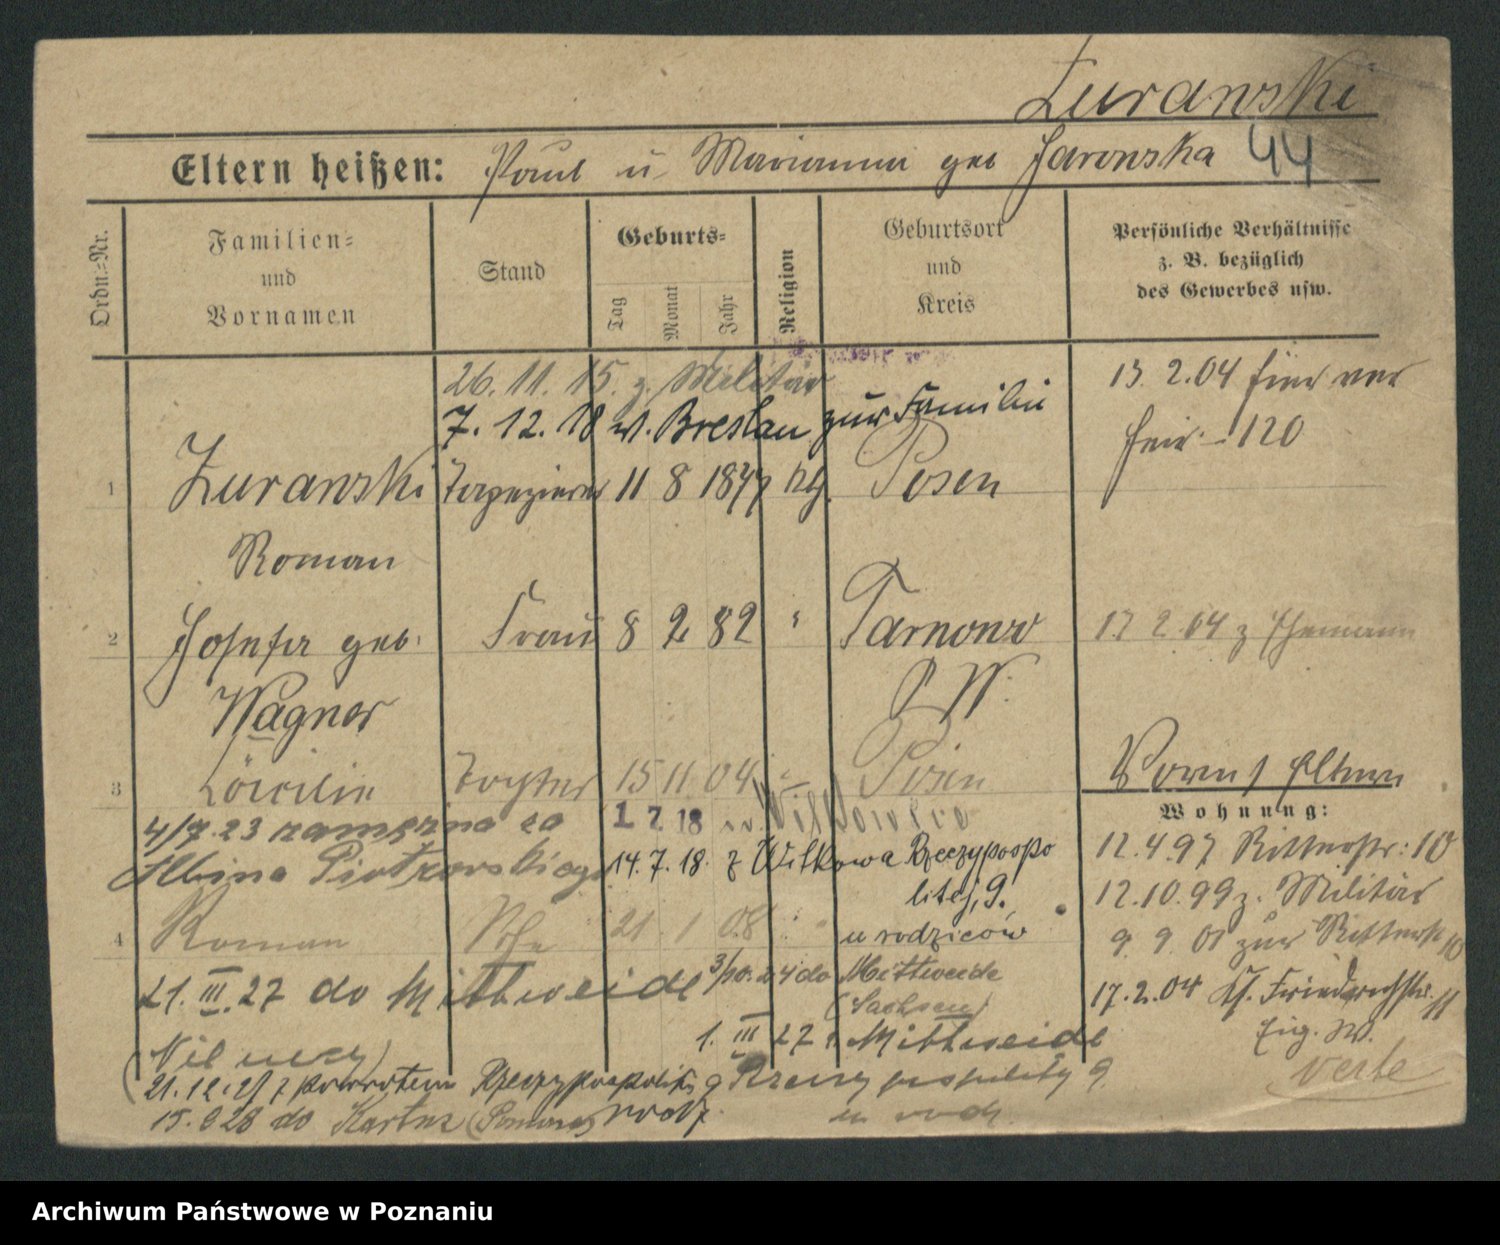 Żurawski
Eltern heißen: Paul u. Marianna geb Jaronska 44
Ordn.=Nr.
Familien=
und
Vornamen
Stand
Geburts=
Tag
Monat
Jahr
Religion
Geburtsort
und
Kreis
Persönliche Verhältnisse
z. B. bezüglich
des Gewerbes usw.
26. 11. 15. z. Militär
7. 12. 18 v. Breslau zur Familie
13. 2. 04
120
1 Żurawski Tapezierer 11 8 1877 kth. Posen
Roman
2 Josefa geb. Frau 8 2 82 " Tarnowo
Wagner P. W.
17 2. 04 z Ehemann
3 Cäcilie Tochter 15 11 04 " Posen
Vorm / Eltern
Wohnung:
4/7. 23 zamężna za 1 7. 18 Witkowo
Albina Piotrowskiego 14. 7. 18. z Witkowa Rzeczypospo
litej, 9.
u rodziców
4 Roman Sohn 21 1 08 "
12. 4. 97 Ritterstr: 10
12. 10. 99 z. Militär
9. 9. 01 zur Ritterstr 10
17. 2. 04 Kl. Friedrichstr. 11
Eig. W.
verte
21. III. 27 do Mittweide 3/10. 24 do Mittweide
(Sachsen)
1. III 27 z Mittweide
(Niemcy)
21. 12. 27 z powrotem Rzeczypospolitej 9 Rzeczypospolitej 9
15. 9 28 do Kartuz (Pomorze) u rodz.